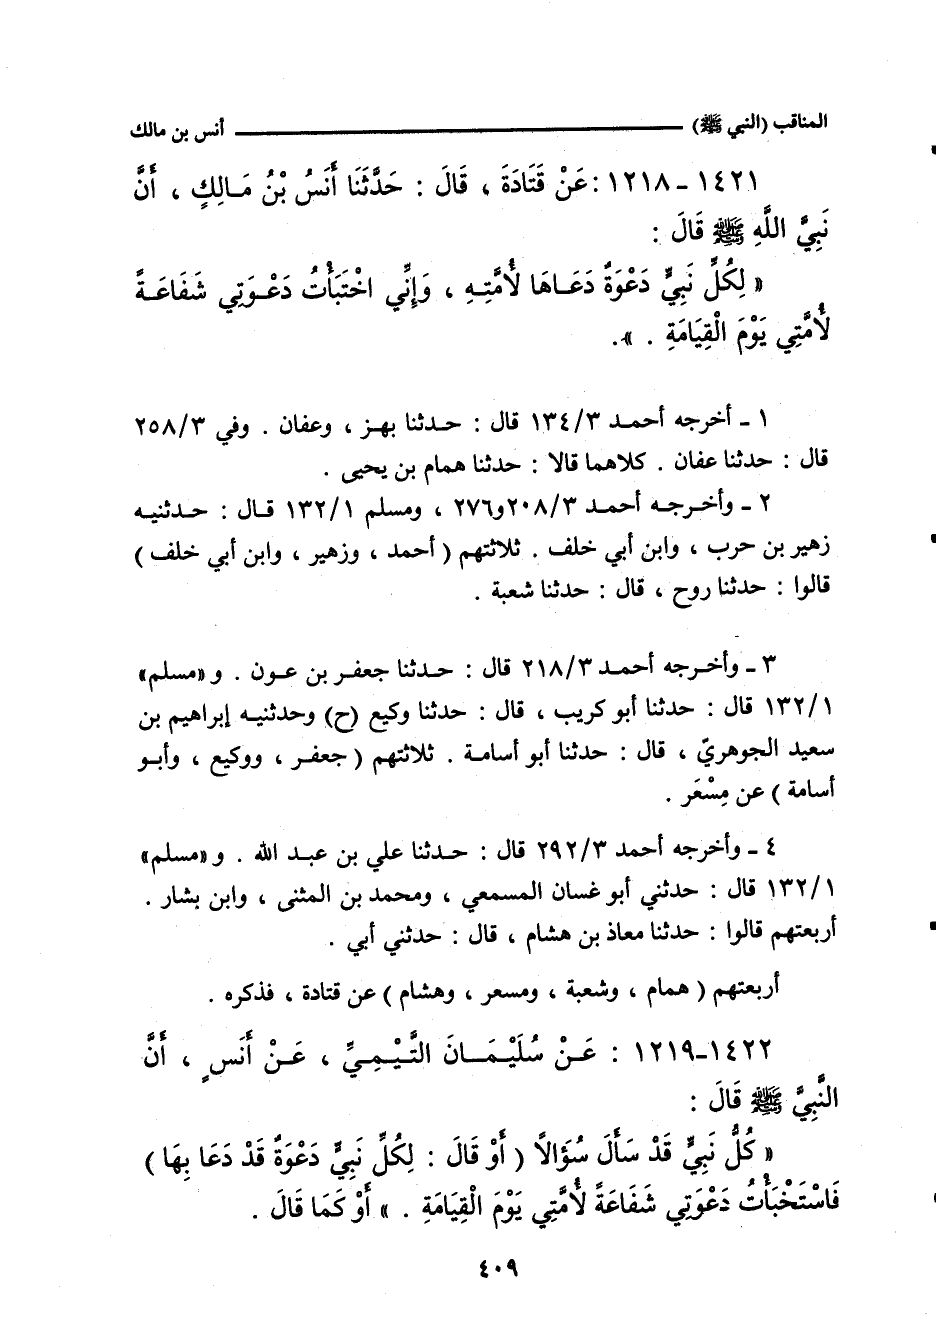 المناقب (النبي ﷺ) ـــــــــ أنس بن مالك
١٤٢١ - ١٢١٨ : عَنْ قَتَادَةَ ، قَالَ : حَدَّثَنَا أَنَسُ بْنُ مَالِكٍ ، أَنَّ
نَبِيَّ اللَّهِ ﷺ قَالَ :
« لِكُلِّ نَبِيٍّ دَعْوَةٌ دَعَاهَا لأُمَّتِهِ ، وَإِنِّي اخْتَبَأْتُ دَعْوَتِي شَفَاعَةً
لأُمَّتِي يَوْمَ الْقِيَامَةِ . ».
١ - أخرجه أحمد ١٣٤/٣ قال : حدثنا بهز ، وعفان . وفي ٢٥٨/٣
قال : حدثنا عفان . كلاهما قالا : حدثنا همام بن يحيى .
٢ - وأخرجه أحمد ٢٠٨/٣ و٢٧٦ ، ومسلم ١٣٢/١ قال : حدثنيه
زهير بن حرب ، وابن أبي خلف . ثلاثتهم ( أحمد ، وزهير ، وابن أبي خلف )
قالوا : حدثنا روح ، قال : حدثنا شعبة .
٣ - وأخرجه أحمد ٢١٨/٣ قال : حدثنا جعفر بن عون . و«مسلم»
١٣٢/١ قال : حدثنا أبو كريب ، قال : حدثنا وكيع (ح) وحدثنيه إبراهيم بن
سعيد الجوهريّ ، قال : حدثنا أبو أسامة . ثلاثتهم ( جعفر ، ووكيع ، وأبو
أسامة ) عن مِسْعَر .
٤ - وأخرجه أحمد ٢٩٢/٣ قال : حدثنا علي بن عبد الله . و«مسلم»
١٣٢/١ قال : حدثني أبو غسان المسمعي ، ومحمد بن المثنى ، وابن بشار .
أربعتهم قالوا : حدثنا معاذ بن هشام ، قال : حدثني أبي .
أربعتهم ( همام ، وشعبة ، ومسعر ، وهشام ) عن قتادة ، فذكره .
١٤٢٢-١٢١٩ : عَنْ سُلَيْمَانَ التَّيْمِيِّ ، عَنْ أَنَسٍ ، أَنَّ
النَّبِيَّ ﷺ قَالَ :
« كُلُّ نَبِيٍّ قَدْ سَأَلَ سُؤَالاً ( أَوْ قَالَ : لِكُلِّ نَبِيٍّ دَعْوَةٌ قَدْ دَعَا بِهَا )
فَاسْتَخْبَأْتُ دَعْوَتِي شَفَاعَةً لأُمَّتِي يَوْمَ الْقِيَامَةِ . » أَوْ كَمَا قَالَ .
٤٠٩